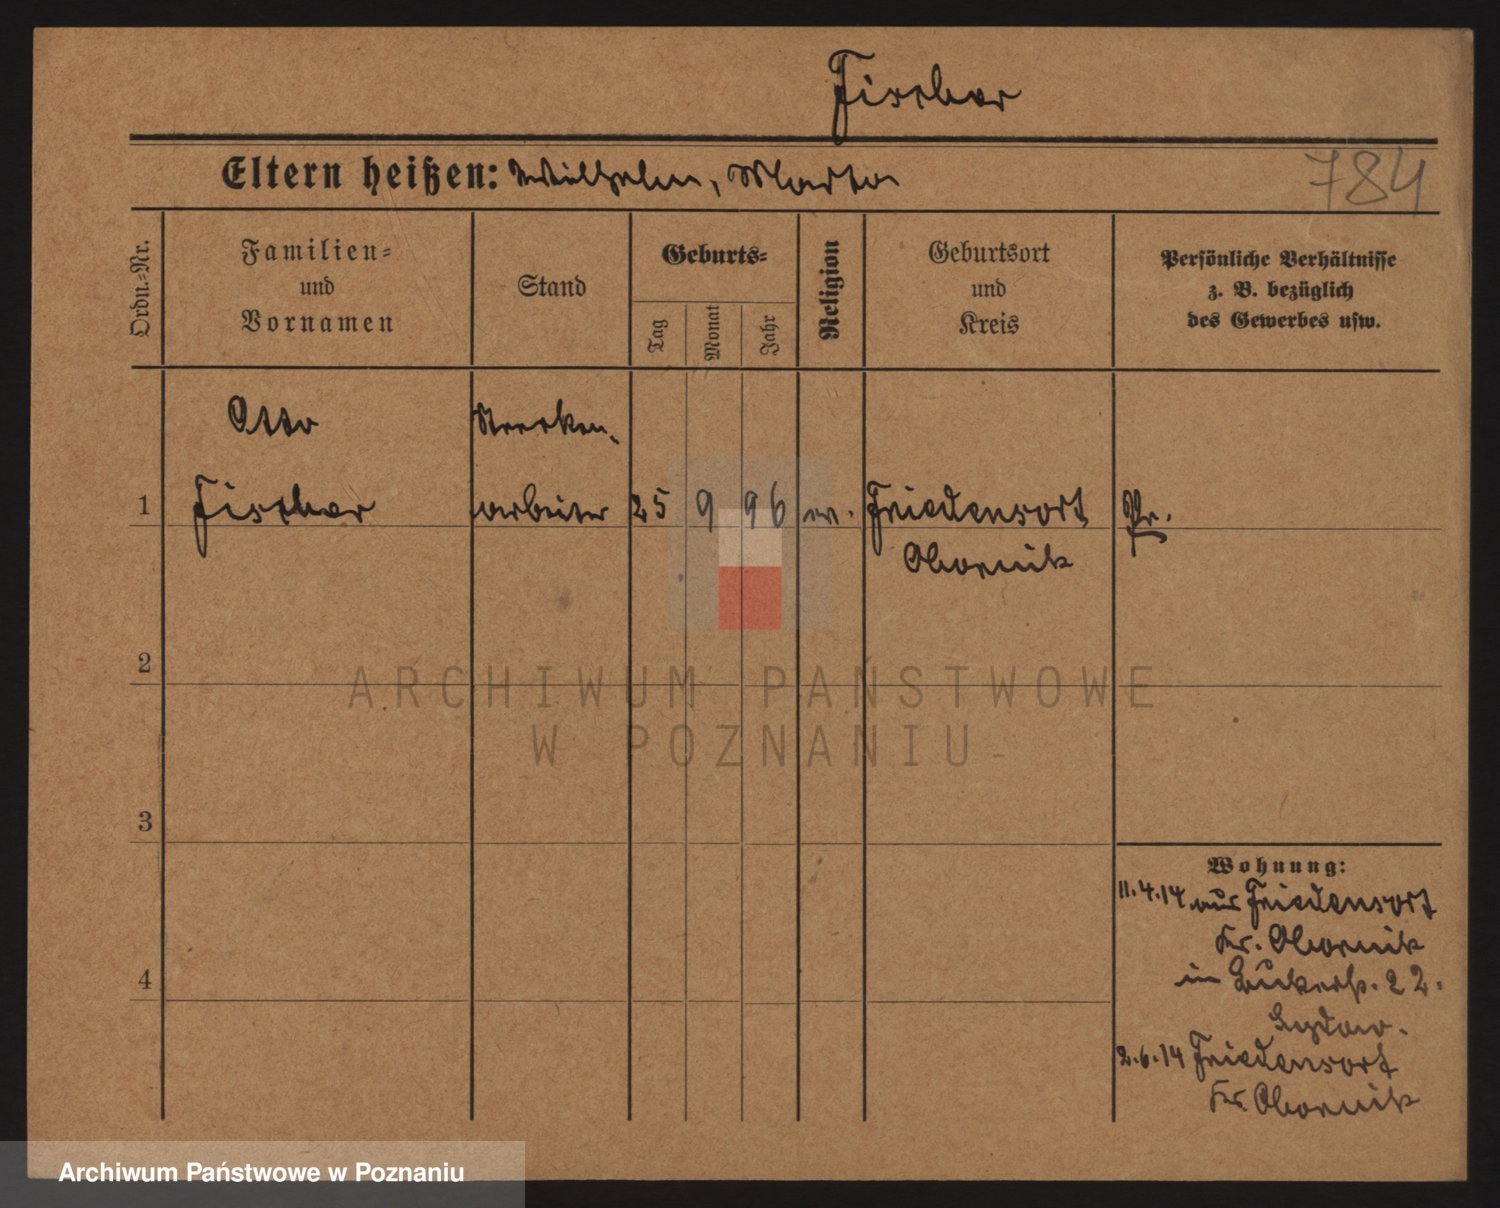 Fischer
Eltern heißen: Wilhelm, Marta
784
Ordn.-Nr.
Familien-
und
Vornamen
Stand
Geburts-
Tag
Monat
Jahr
Religion
Geburtsort
und
Kreis
Persönliche Verhältnisse
z. B. bezüglich
des Gewerbes usw.
Otto
Strecken-
1
Fischer
arbeiter
25
9
96
ev.
Friedensort
Pr.
Obornik
2
ARCHIWUM PAŃSTWOWE
W POZNANIU
3
Wohnung:
11.4.14 aus Friedensort
Kr. Obornik
in 22.
2.6.14 Friedensort
4
Kr. Obornik
Archiwum Państwowe w Poznaniu